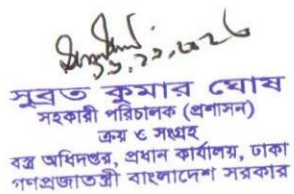 সুব্রত কুমার ঘোষ
সহকারী পরিচালক (প্রশাসন)
ক্রয় ও সংগ্রহ
বস্ত্র অধিদপ্তর, প্রধান কার্যালয়, ঢাকা
গণপ্রজাতন্ত্রী বাংলাদেশ সরকার